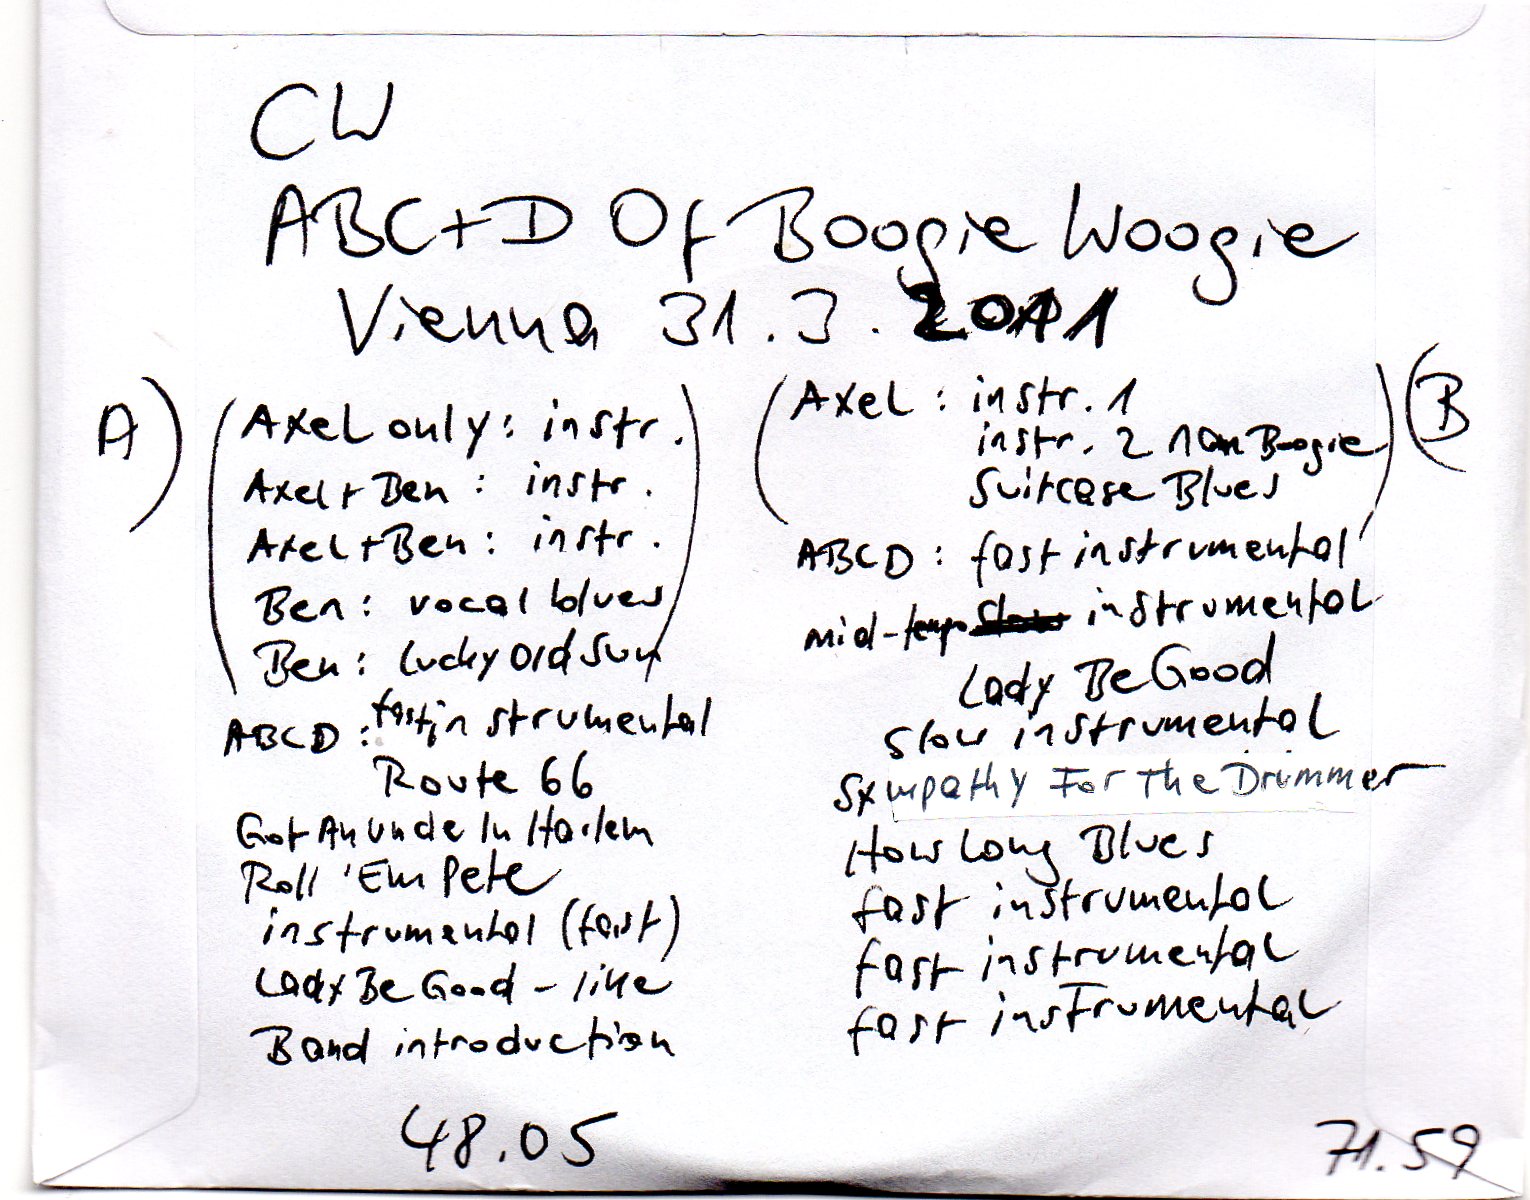 CW
ABC+D Of Boogie Woogie
Vienna 31.3.2011
A)
(Axel only: instr.
Axel+Ben: instr.
Axel+Ben: instr.
Ben: vocal blues
Ben: Lucky Old Sun)
ABCD: fast instrumental
Route 66
Got An Uncle In Harlem
Roll 'Em Pete
instrumental (fast)
Lady Be Good-like
Band introduction
48.05
B)
(Axel: instr. 1
instr. 2 Boogie
Suitcase Blues)
ABCD: fast instrumental
mid-tempo slow instrumental
Lady Be Good
slow instrumental
Sympathy For The Drummer
How Long Blues
fast instrumental
fast instrumental
fast instrumental
71.59